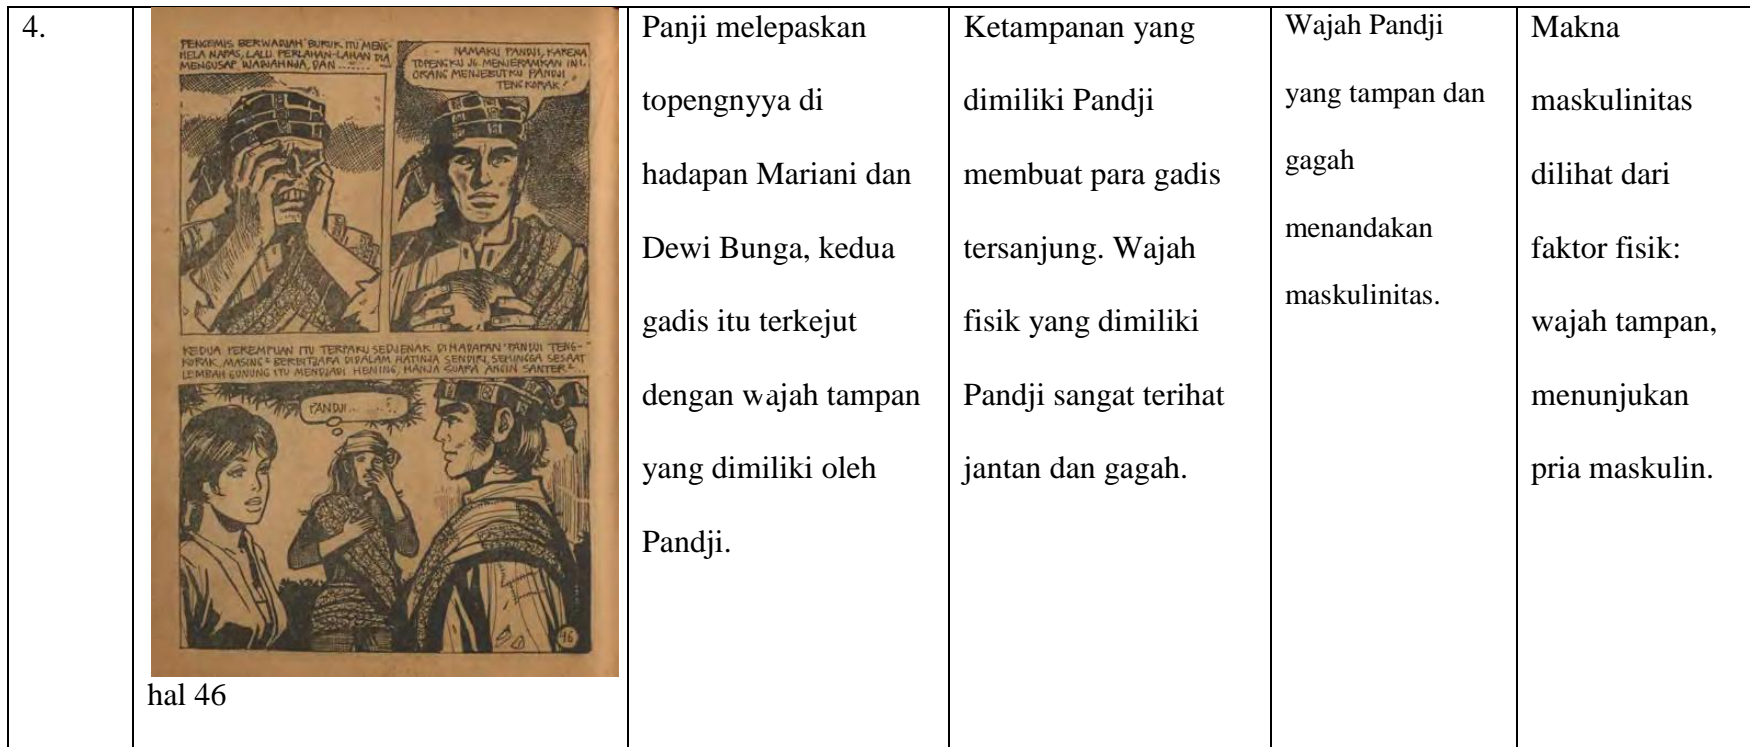 4.
PENGEMIS BERWADJAH BURUK ITU MENG-
HELA NAPAS, LALU PERLAHAN-LAHAN DIA
MENGUSAP WADJAHNJA, DAN .......
NAMAKU PANDJI, KARENA
TOPENGKU JG MENJERAMKAN INI.
ORANG MENJEBUTKU PANDJI
TENGKORAK!
KEDUA PEREMPUAN ITU TERPAKU SEDJENAK DIHADAPAN PANDJI TENG-
KORAK, MASING² BERBITJARA DIDALAM HATINJA SENDIRI, SEHINGGA SESAAT
LEMBAH GUNUNG ITU MENDJADI HENING, HANJA SUARA ANGIN SANTER²...
PANDJI......
46
hal 46
Panji melepaskan
topengnyya di
hadapan Mariani dan
Dewi Bunga, kedua
gadis itu terkejut
dengan wajah tampan
yang dimiliki oleh
Pandji.
Ketampanan yang
dimiliki Pandji
membuat para gadis
tersanjung. Wajah
fisik yang dimiliki
Pandji sangat terihat
jantan dan gagah.
Wajah Pandji
yang tampan dan
gagah
menandakan
maskulinitas.
Makna
maskulinitas
dilihat dari
faktor fisik:
wajah tampan,
menunjukan
pria maskulin.